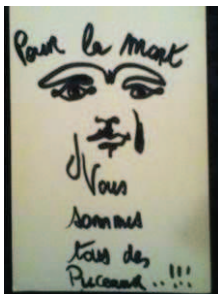 Pour la mort
Nous
sommes
tous des
Puceaux..!!!